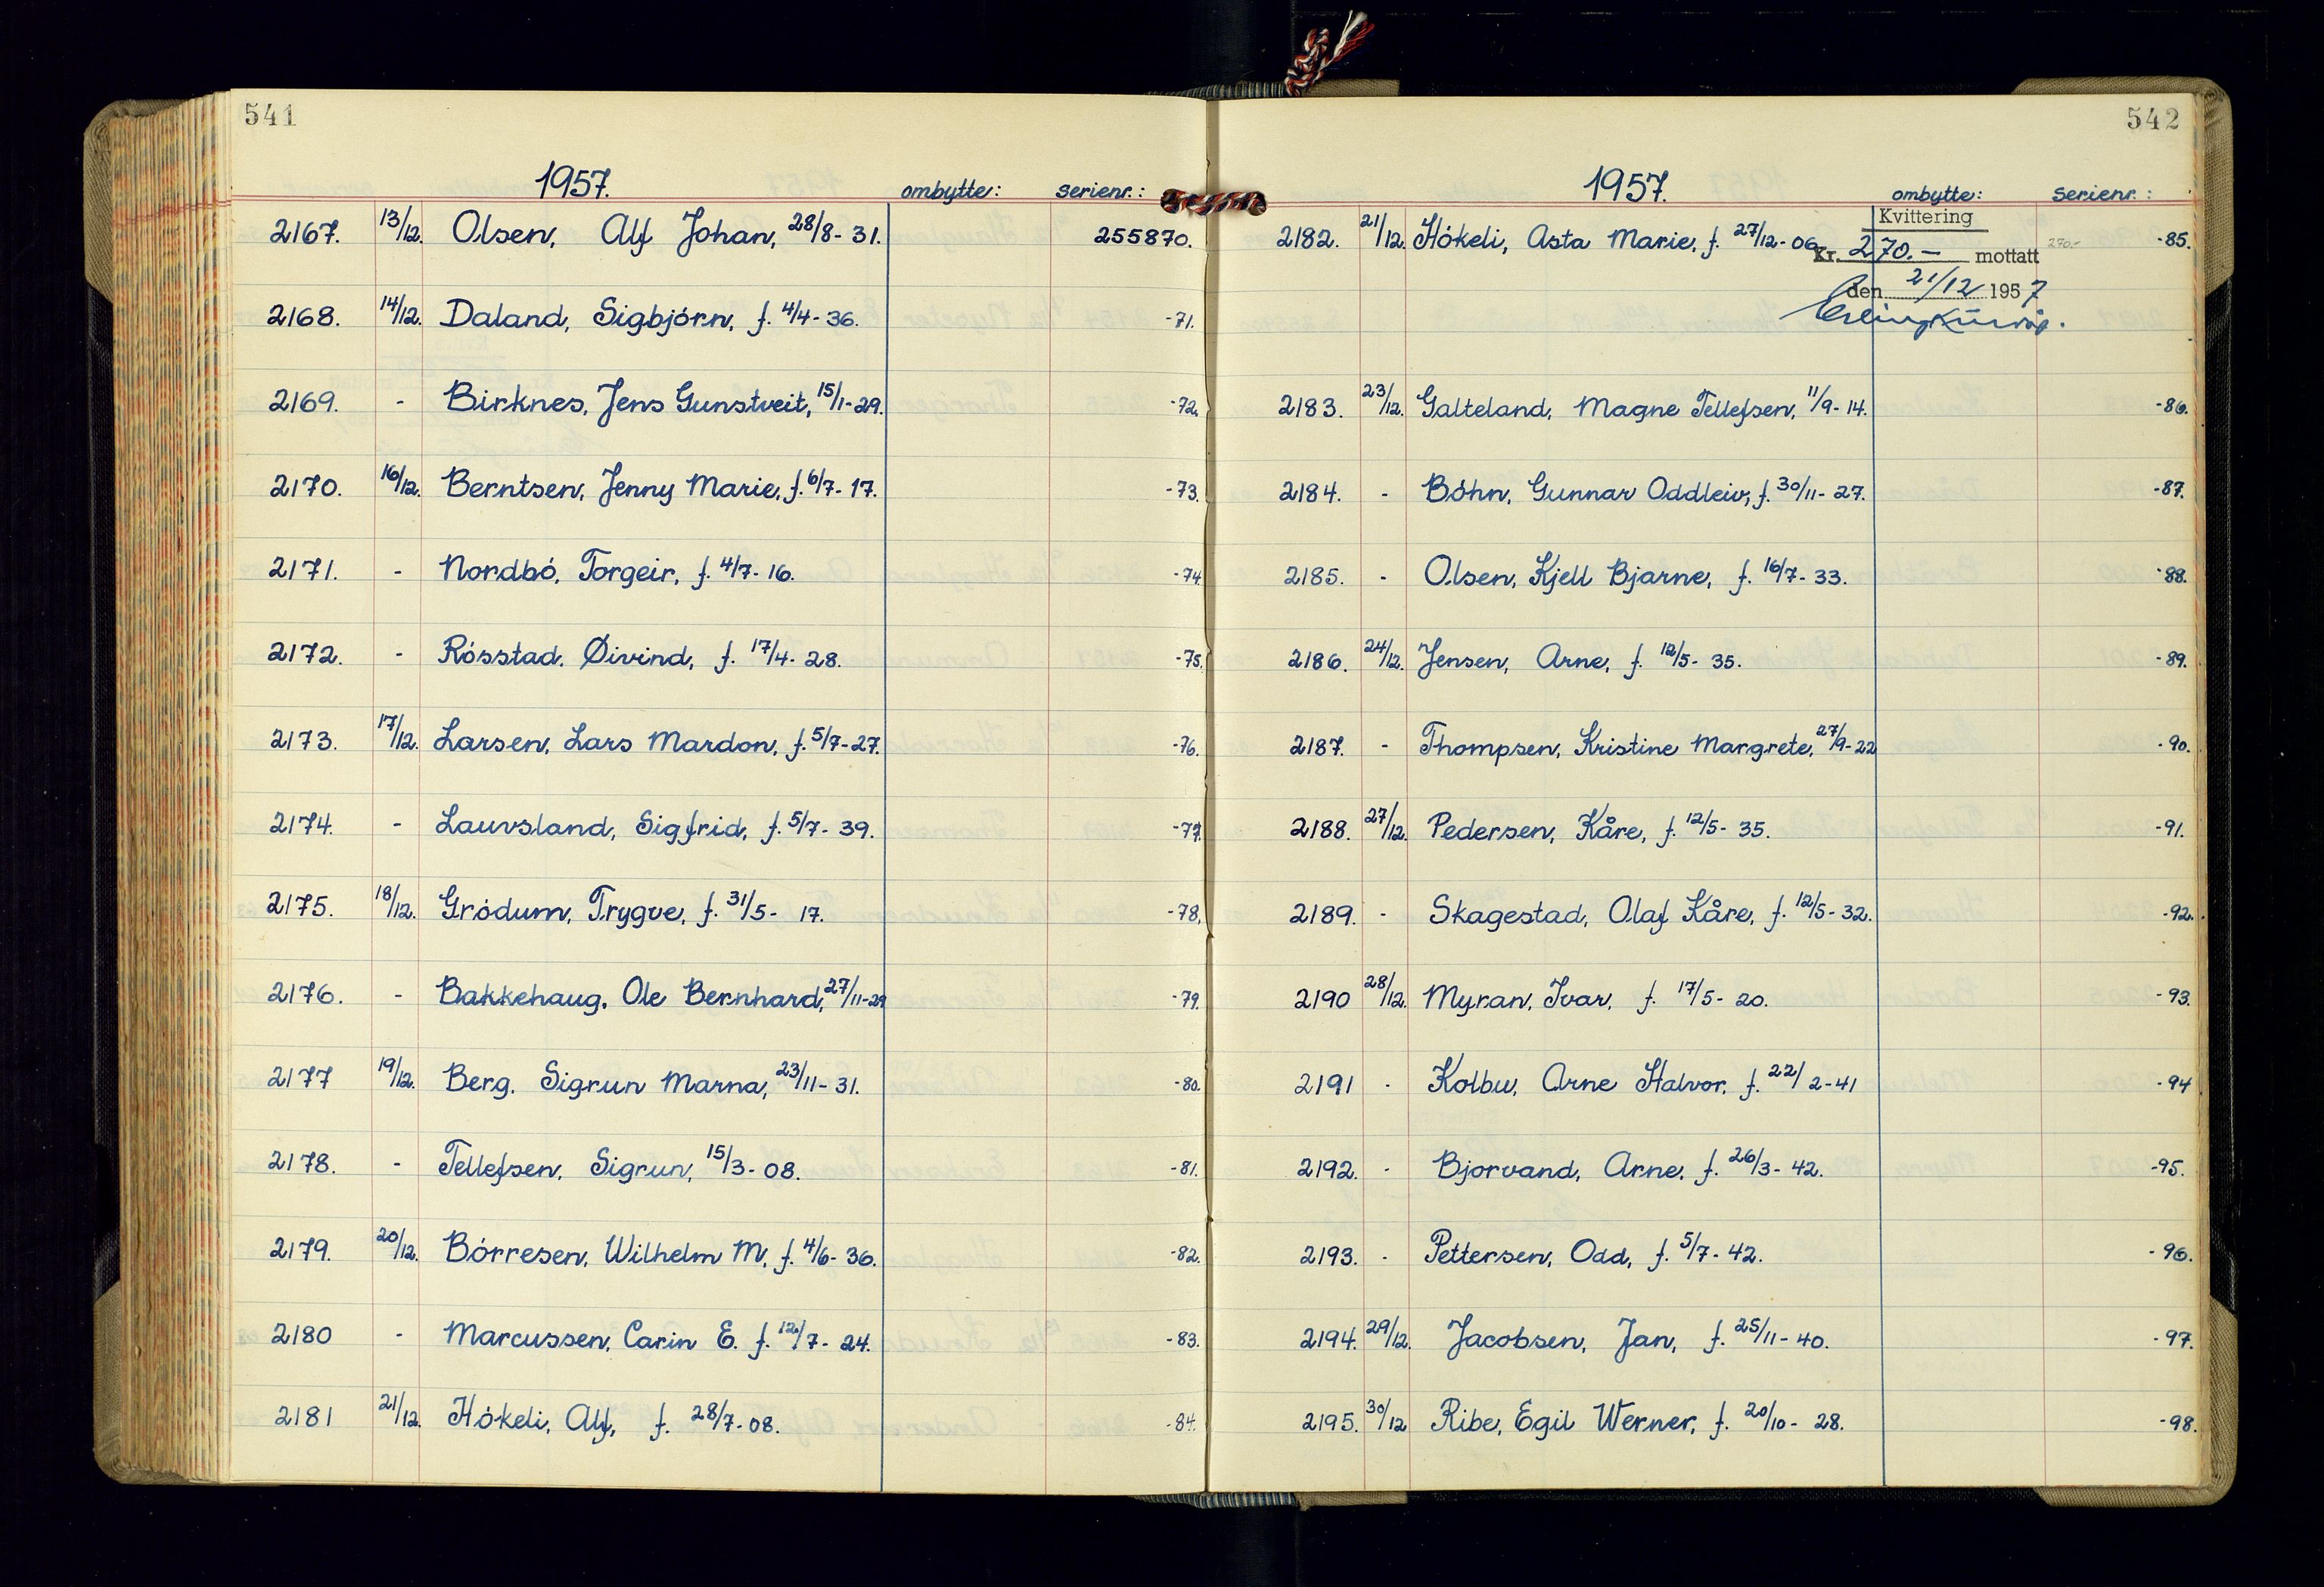 541
1957. ombytte: serienr.:
2167. 13/12. Olsen, Alf Johan, 28/8-31. 255870.
2168. 14/12. Daland, Sigbjórn, f. 4/4-36. -71.
2169. - Birknes, Jens Gunstveit, 15/1-29. -72.
2170. 16/12. Berntsen, Jenny Marie, f. 6/7-17. -73.
2171. - Nordbó, Torgeir, f. 4/7-16. -74
2172. - Rósstad, Øivind, f. 17/4-28. -75.
2173. 17/12. Larsen, Lars Mardon, f. 5/7-27. -76.
2174. - Lauvsland, Sigfrid, f. 5/7-39. -77.
2175. 18/12. Gródum, Trygve, f. 31/5-17. -78.
2176. - Bakkehaug, Ole Bernhard, 27/11-29 -79.
2177 19/12. Berg, Sigrun Marna, 23/11-31. -80.
2178. - Tellefsen, Sigrun, 15/3-08. -81.
2179. 20/12. Bórresen, Wilhelm M, f. 4/6-36. -82.
2180 - Marcussen, Carin E. f. 12/7-24. -83.
2181 21/12. Hókeli, Alf, f. 28/7-08. -84.
542
1957. ombytte: serienr.:
Kvittering
2182. 21/12. Hókeli, Asta Marie, f. 27/12-06. 270.- -85.
Kr. 270.- mottatt
den 21/12 1957
2183. 23/12. Galteland, Magne Tellefsen, 11/9-14. -86.
2184. - Bóhn, Gunnar Oddleiv, f. 30/11-27. -87.
2185. - Olsen, Kjell Bjarne, f. 16/7-33. -88.
2186. 24/12. Jensen, Arne, f. 12/5-35. -89.
2187. - Thompsen, Kristine Margrete, 27/9-22 -90.
2188. 27/12. Pedersen, Kåre, f. 12/5-35. -91.
2189. - Skagestad, Olaf Kåre, f. 12/5-32. -92.
2190 28/12. Myran, Ivar, f. 17/5-20. -93.
2191 - Kolbu, Arne Halvor, f. 22/2-41 -94
2192. - Bjorvand, Arne, f. 26/3-42. -95.
2193. - Pettersen, Odd, f. 5/7-42. -96.
2194. 29/12. Jacobsen, Jan, f. 25/11-40. -97.
2195. 30/12 Ribe, Egil Werner, f. 20/10-28. -98.